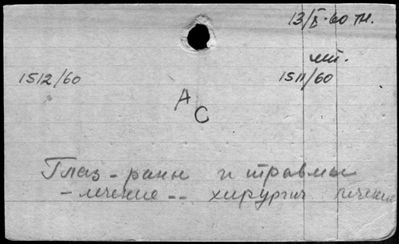 13/X-60 тг.
1512/60
1511/60
А
С
Глаз - раны и травмы
- лечение -- хирургич лечение